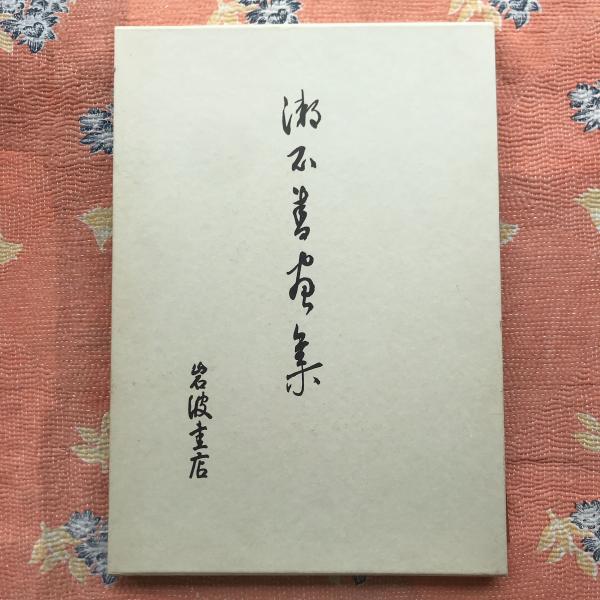 漱石書画集
岩波書店